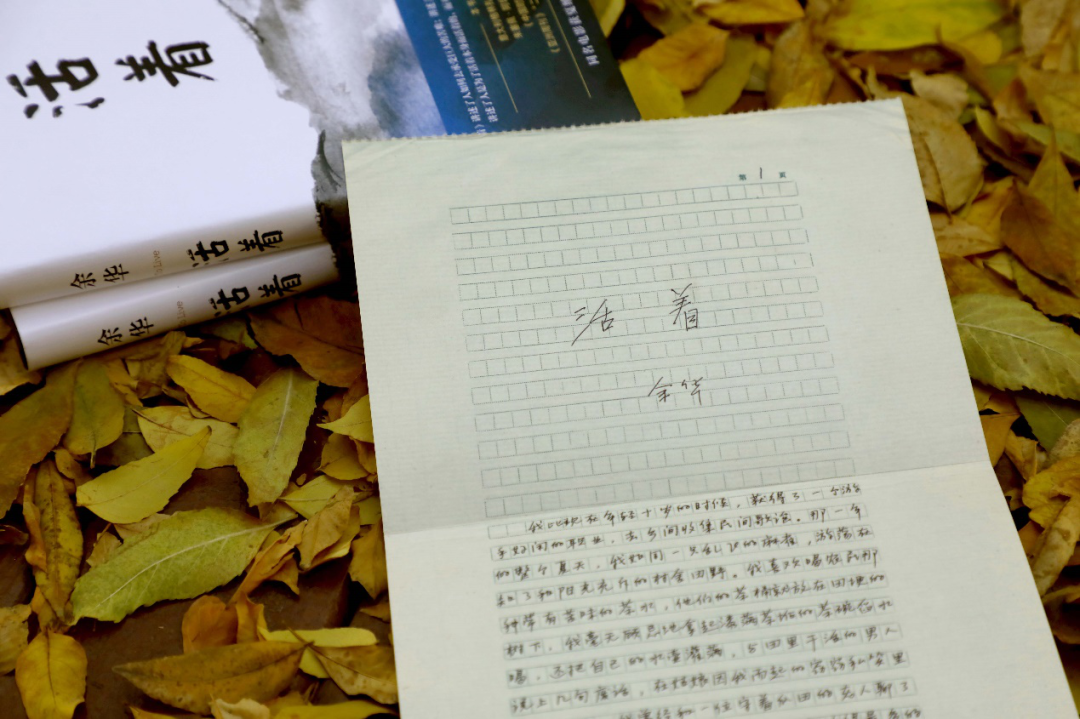 活着
余华 活着
余华 活着
第1页
活着
余华
我比现在年轻十岁的时候，获得了一个游
手好闲的职业，去乡间收集民间歌谣。那一年
的整个夏天，我如同一只乱飞的麻雀，游荡在
知了和阳光充斥的村舍田野。我喜欢喝农民那
种带有苦味的茶水，他们的茶桶就放在田埂的
树下，我毫无顾忌地拿起漆满茶垢的茶碗舀水
喝，还把自己的水壶灌满，与田里干活的男人
说上几句废话，在姑娘因我而起的窃窃私笑里
我曾经和一位守着瓜田的老人聊了